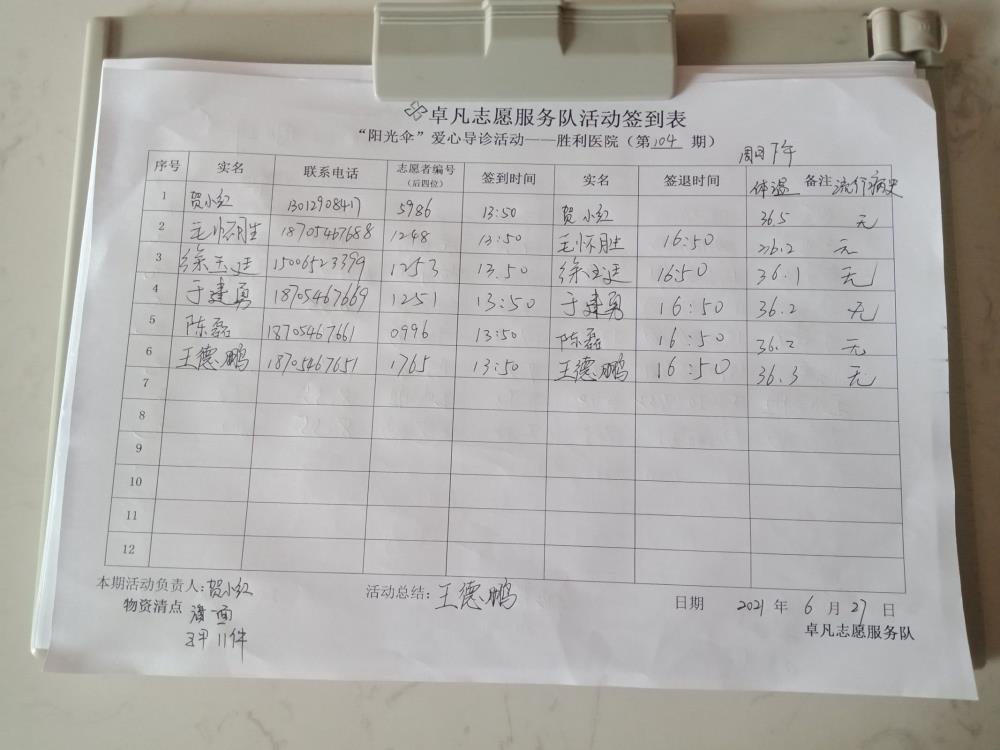 卓凡志愿服务队活动签到表
“阳光伞”爱心导诊活动——胜利医院（第104期）
周日下午
序号 实名 联系电话 志愿者编号（后四位） 签到时间 实名 签退时间 体温 备注 流行病史
1 贺小红 13012908417 5986 13:50 贺小红 36.5 无
2 王怀胜 18705467688 1248 13:50 王怀胜 16:50 36.2 无
3 徐玉廷 15006523399 1253 13.50 徐玉廷 16:50 36.1 无
4 于建勇 18705467669 1251 13:50 于建勇 16:50 36.2 无
5 陈磊 18705467661 0996 13:50 陈磊 16:50 36.2 无
6 王德鹏 18705467651 1765 13:50 王德鹏 16:50 36.3 无
7
8
9
10
11
12
本期活动负责人：贺小红 活动总结：王德鹏 日期 2021年6月27日
物资清点
11件
卓凡志愿服务队